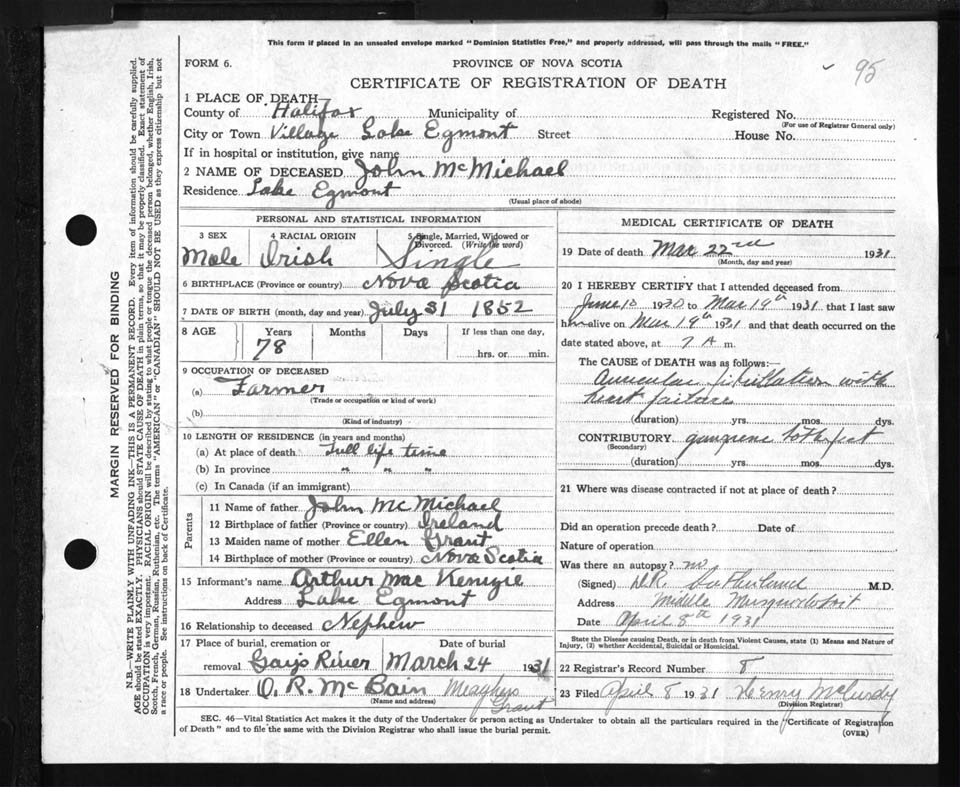 This form if placed in an unsealed envelope marked "Dominion Statistics Free," and properly addressed, will pass through the mails "FREE."
FORM 6. PROVINCE OF NOVA SCOTIA 95
CERTIFICATE OF REGISTRATION OF DEATH
1 PLACE OF DEATH—
County of Halifax Municipality of Registered No.
(For use of Registrar General only)
City or Town Village Lake Egmont Street House No.
If in hospital or institution, give name
2 NAME OF DECEASED John McMichael
Residence Lake Egmont
(Usual place of abode)
PERSONAL AND STATISTICAL INFORMATION
3 SEX 4 RACIAL ORIGIN 5 Single, Married, Widowed or Divorced. (Write the word)
Male Irish Single
6 BIRTHPLACE (Province or country) Nova Scotia
7 DATE OF BIRTH (month, day and year) July 31 1852
8 AGE Years Months Days If less than one day,
78 hrs. or min.
9 OCCUPATION OF DECEASED
(a) Farmer
(Trade or occupation or kind of work)
(b)
(Kind of industry)
10 LENGTH OF RESIDENCE (in years and months)
(a) At place of death Full life time
(b) In province " " "
(c) In Canada (if an immigrant)
Parents
11 Name of father John McMichael
12 Birthplace of father (Province or country) Ireland
13 Maiden name of mother Ellen Grant
14 Birthplace of mother (Province or country) Nova Scotia
15 Informant's name Arthur Mac
Address Lake Egmont
16 Relationship to deceased Nephew
17 Place of burial, cremation or removal Date of burial
Gays River March 24 1931
18 Undertaker O. R. McBain Grant
(Name and address)
MEDICAL CERTIFICATE OF DEATH
19 Date of death Mar 22nd 1931
(Month, day and year)
20 I HEREBY CERTIFY that I attended deceased from
June 10 1930 to Mar 19th 1931 that I last saw
him alive on Mar 19th 1931 and that death occurred on the
date stated above, at 7 A m.
The CAUSE OF DEATH was as follows:—
Auricular fibrillation with
heart failure
(duration) yrs. mos. dys.
CONTRIBUTORY gangrene both feet
(Secondary)
(duration) yrs. mos. dys.
21 Where was disease contracted if not at place of death?
Did an operation precede death? Date of
Nature of operation
Was there an autopsy? no
(Signed) D.R. Sutherland M.D.
Address Middle Musquodoboit
Date April 8th 1931
State the Disease causing Death, or in death from Violent Causes, state (1) Means and Nature of
Injury, (2) whether Accidental, Suicidal or Homicidal.
22 Registrar's Record Number 8
23 Filed April 8 1931 Henry McCurdy
(Division Registrar)
SEC. 46—Vital Statistics Act makes it the duty of the Undertaker or person acting as Undertaker to obtain all the particulars required in the Certificate of Registration
of Death" and to file the same with the Division Registrar who shall issue the burial permit. (OVER)
MARGIN RESERVED FOR BINDING
N.B.—WRITE PLAINLY WITH UNFADING INK—THIS IS A PERMANENT RECORD. Every item of information should be carefully supplied.
AGE should be stated EXACTLY. PHYSICIANS should STATE CAUSE OF DEATH in plain terms, so that it may be properly classified. Exact statement of
OCCUPATION is very important. RACIAL ORIGIN will be described by stating to what people or tongue the deceased person belonged, whether English, Irish,
Scotch, French, German, Russian, Ruthenian, etc. The terms "AMERICAN" or "CANADIAN" SHOULD NOT BE USED as they express citizenship but not
a race or people. See instructions on back of Certificate.